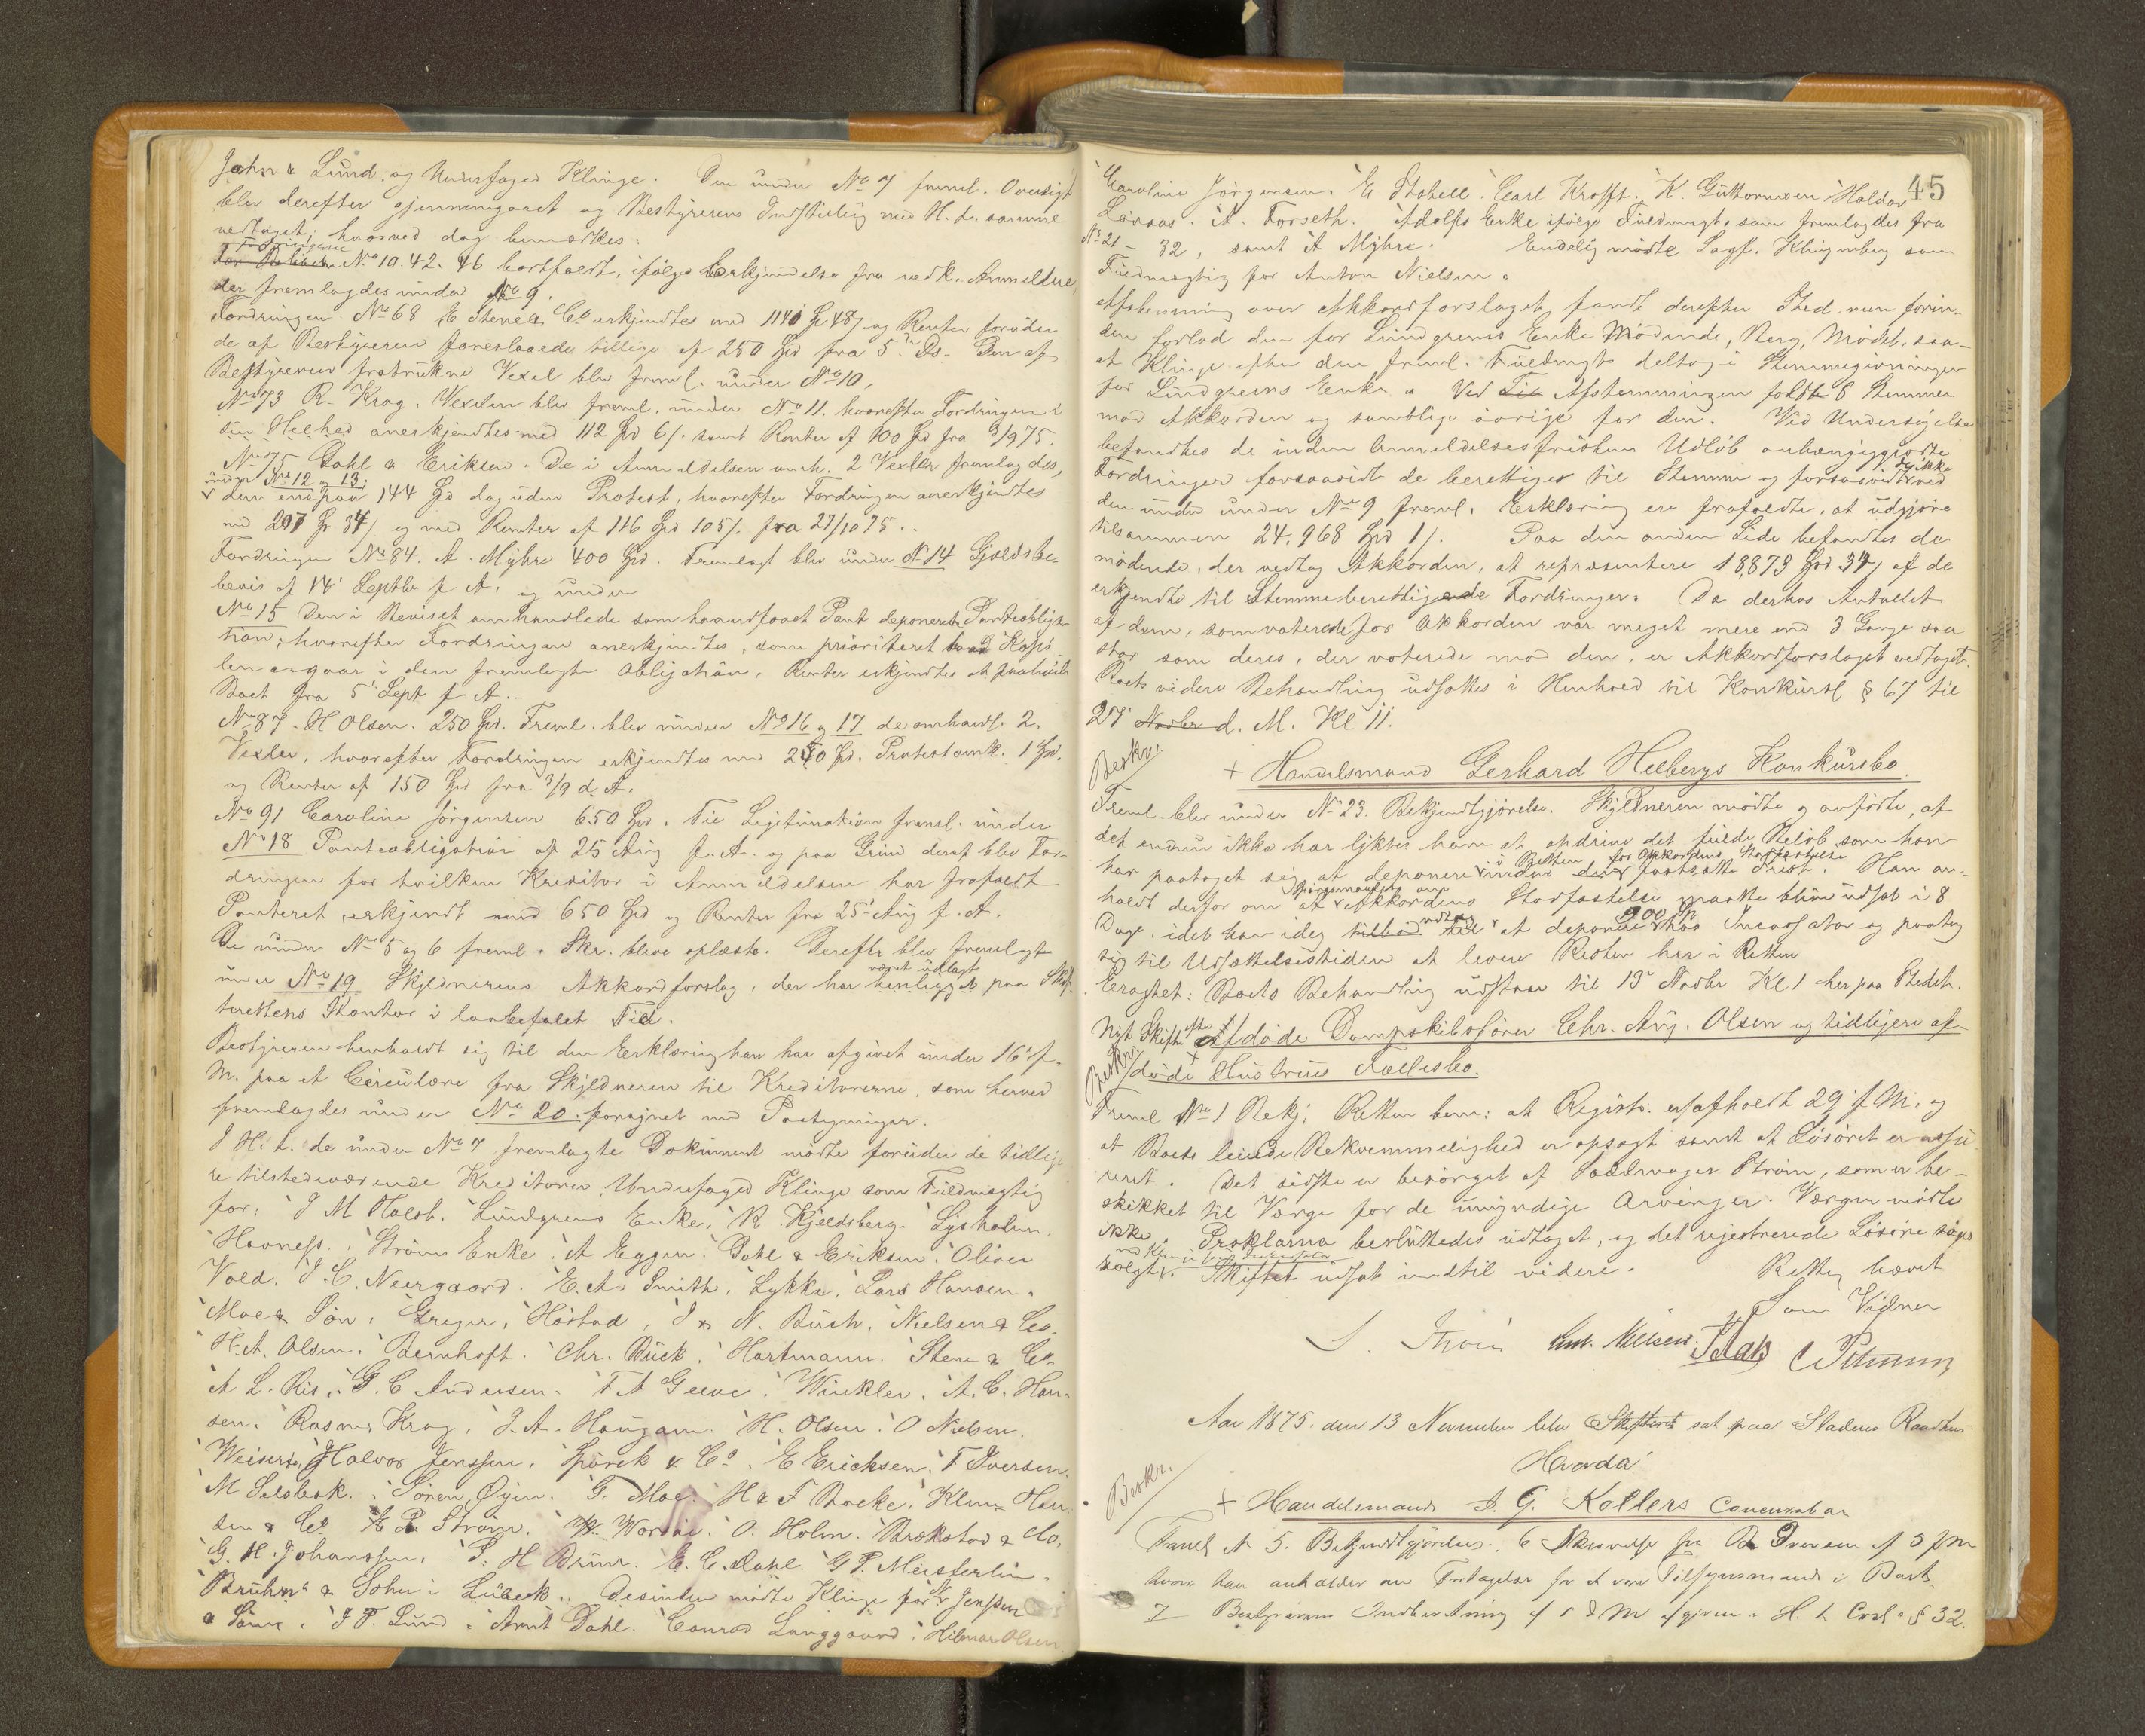 Jahn & Lund, og Underfoged Klinge. Den under No 7 freml. Oversigt
blev derefter gjennemgaaet og Bestyrerens Indstilling med H. t. samme
vedtaget; hvorved dog bemærkes:
Fordringerne
No 10. 42. 46 bortfaldt, ifølge Erkjendelse fra vedk. Anmeldere,
der fremlagdes under No 9.
Fordringen No 68 E Stene & Co erkjendtes med 1140 Spd 48/ og Renter foruden
de af Bestyreren foreslaaede tillige af 250 Spd fra 5' Ds. Den af
Bestyreren fratrukne Vexel blev freml. under No 10.
No 73 R. Krog. Vexlen blev freml. under No 11. hvorefter Fordringen i
sin Helhed anerkjendtes med 112 Spd 6/. samt Renter af 100 Spd fra 3/9 75.
No 75 Dahl & Eriksen. De i Anmeldelsen omh. 2 Vexler fremlagdes,
under No 12 og 13;
den ene paa 144 Spd dog uden Protest, hvorefter Fordringen anerkjendtes
med 207 Sp 34/ og med Renter af 116 Spd 105/. fra 27/10 75..
Fordringen No 84. A. Myhre 400 Spd. Fremlagt blev under No 14 Gjeldsbe-
bevis af 14' Septbr f A. og under
No 15 Den i Beviset omhandlede som haandfaaet Pant deponerede Panteobliga-
tion; hvorefter Fordringen anerkjendtes, som prioriteret
i den fremlagte Obligation, Renter erkjendtes at paahvile
Boet fra 5' Sept f A.-
No 87 - H Olsen. 250 Spd. Freml. blev under No 16 og 17 de omhandl. 2.
Vexler, hvorefter Fordringen erkjendtes med 250 Spd. Protestomk. 1 Spd.
og Renter af 150 Spd fra 3/9 d. A.
No 91 Caroline Jørgensen 650 Spd. Til Legitimation freml. under
No 18 Panteobligation af 25 Aug f. A. og paa Grund deraf blev For-
dringen for hvilken Kreditor i Anmeldelsen har frafaldt
Panteret erkjendt med 650 Spd og Renter fra 25' Aug f. A.
De under No 5 og 6 freml. Skr. bleve oplæste. Derefter blev fremlagt
under No 19 Skyldnerens Akkordforslag, der har været udlagt paa Skif-
terettens Kontor i lovbefalet Tid.
Bestyreren henholdt sig til den Erklæring han har afgivet under 16' f.
M. paa et Circulære fra Skyldneren til Kreditorerne, som herved
fremlagdes under No 20. forsynet med Paategninger.
I H. t. de under No 7 fremlagte Dokument mødte foruden de tidlige-
re tilstedeværende Kreditorer, Underfoged Klinge som Fuldmægtig
for: J M Halsb. Lundgrens Enke, R. Kjeldsberg. Lysholm
Havness. Strøms Enke, A Eggen. Dahl & Eriksen. Oliver
Vold. J. C. Neergaard. E. A. Smith, Lykke, Lars Hansen.
Moe & Søn, Greger, Høstad, J. N. Buch, Nielsen & Co.
H. A. Olsen. Bernhoft. Chr. Buck. Hartmann. Stene & Co.
A L. Ris. G. C Andersen. F A Geeve. Winkler. A. C. Han-
sen. Rasmus Krog, J. A. Haugan. H. Olsen. O Nielsen.
Weiserts, Halvor Jenssen, Spørck & Co. E Ericksen. F Iversen.
M Selsbak. Søren Øyen. G. Moe. H & F Bocke. Klem Han-
sen & Co E A Strøm. W. O. Holm. Brækstad & Co.
G. H. Johanssen, S. H Bruur. E. C. Dahl. G P. Meisterlin.
Bruhns & Sohn i Lübeck. Desuden mødte Klinge for N Jenssen
& Sønner. J F. Lund. Arnt Dahl. Conrad Langgaard. Hilmar Olsen
45
Caroline Jørgensen. E Stabell. Carl Krofft. K. Guttormsen. Haldor
Løraas. A. Forseth. Adolfs Enke ifølge Fuldmagt, som fremlagdes fra
No 21 - 32, samt A Myhre. Endelig mødte Sagf. Klingenberg som
Fuldmægtig for Anton Nielsen.
Afstemning over Akkordforslaget fandt derefter Sted. men forin-
den forlod den for Lundgrens Enke Mødende, Berg, Mødet, saa-
at Klinge efter den freml. Fuldmagt deltog i Stemmegivningen
for Lundgrens Enke. Ved Afstemningen faldt 8 Stemmer
mod Akkorden og samtlige øvrige for den. Ved Undersøgelse
befandtes de inden Anmeldelsesfristens Udløb anhængiggjorte
Fordringer forsaavidt de berettiger til Stemme og forsaavidt de ikke ved
den under No 9 freml. Erklæring ere frafaldte, at udgjøre
tilsammen 24.968 Spd 1/. Paa den anden Side befandtes de
mødende, der vedtog Akkorden, at repræsentere 18,873 Spd 34/ af de
erkjendte til Stemme berettigende Fordringer. Da derhos Antallet
af dem, som voterede for Akkorden var meget mere end 3 Gange saa
stor som deres, der voterede mod den, er Akkordforslaget vedtaget.
Boets videre Behandling udsattes i Henhold til Konkursl § 67 til
27' d. M. Kl 11.
Beskr.
+ Handelsmand Gerhard Helbergs Konkursbo.
Freml. blev under No 23. Bekjendtgjørelse. Skyldneren mødte og anførte, at
det endnu ikke har lykkes ham at opdrive det fulde Beløb, som han
har paataget sig at deponere i Retten for Akkordens Stadfæstelse fastsatte Frist. Han an-
holdt derfor om at Spørgsmaalet om Akkordens Stadfæstelse maatte blive udsat i 8
Dage. idet han idag vedtog at deponere 900 Sp hos Incassator og paatog
sig til Udsættelsestiden at levere Resten her i Retten
Eragtet: Boets Behandling udstaar til 13' Novbr Kl 1 her paa Stedet.
Nyt Skifte efter afdøde Dampskibsfører Chr. Aug. Olsen og tidligere af-
Beskr.
døde Hustrues Fællesbo.
Freml No 1 Bekj. Retten bem: at Registr. er afholdt 29' f M. og
at Boets leiede Bekvemmelighed er opsagt samt at Løsøret er assu-
reret. Det sidste er besørget af Sadelmager Strøm, som er be-
skikket til Værge for de umyndige Arvinger. Værgen mødte
ikke. Proklama besluttedes udtaget, og det registrerede Løsøre søges
solgt med Klinge som Incassator. Skiftet udsat indtil videre. Retten hævet
Som Vidner
Ant. Nielsen
Aar 1875. den 13 November blev Skifteret sat paa Stadens Raadhus
Hvorda'
Beskr.
+ Handelsmand J. G. Kollers Concursbo
Freml N 5. Bekjendtgjørelse. 6 Skrivelse fra Iversen af 5 f M
hvori han anholder om Fritagelse for at være Tilsynsmand i Boet
7 Bestyrerens Indberetning af d M afgiven i H. t. Cosl. § 32.